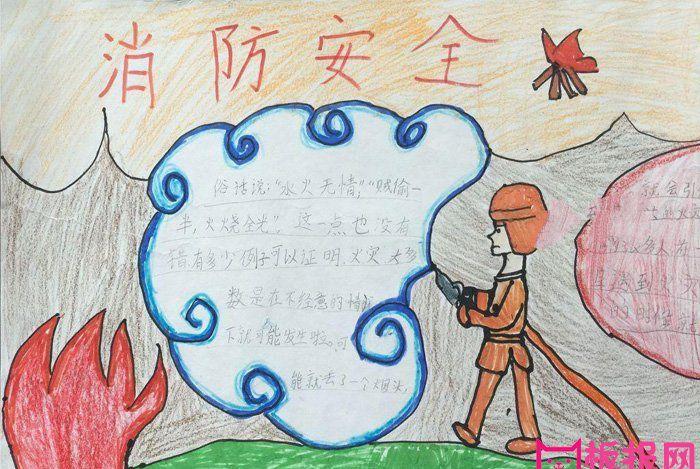 消防安全
俗话说:"水火无情","贼偷一
半,火烧全光"。这一点也没有
错,有多少例子可以证明,火灾大多
数是在不经意的情况
下就可能发生啦。可
能就丢了一个烟头,
就会引
多人在
遇到火灾
的时候
板报网